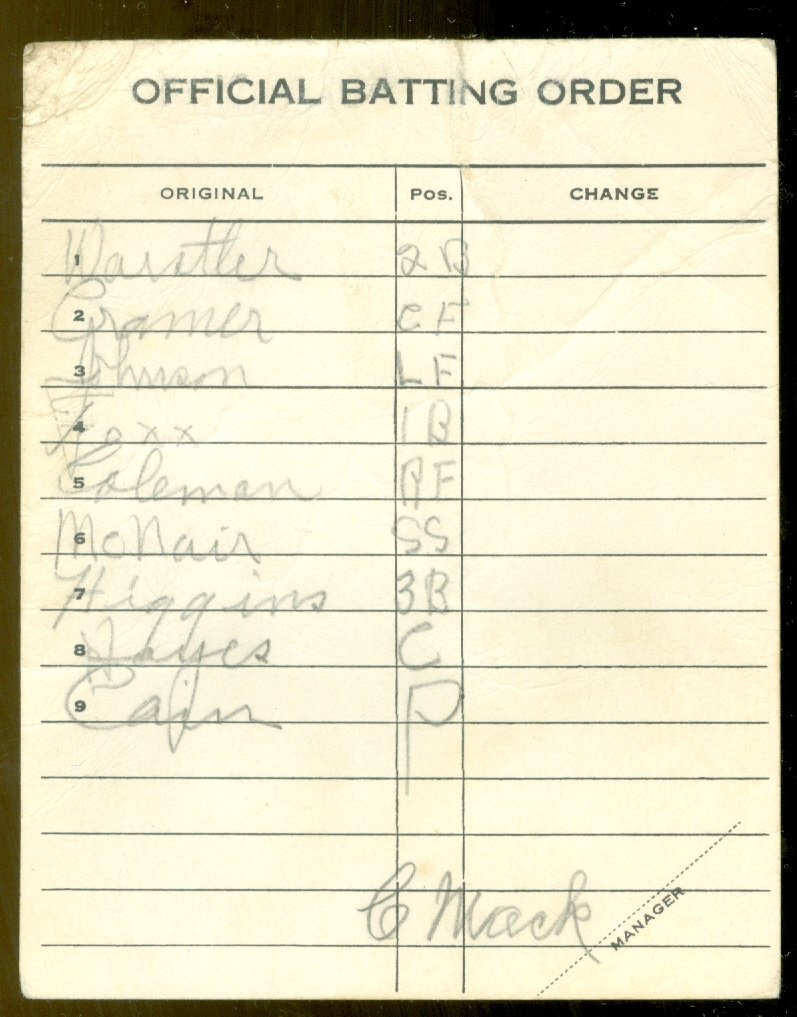 OFFICIAL BATTING ORDER
ORIGINAL Pos. CHANGE
1 Warstler 2B
2 Cramer CF
3 Johnson LF
4 Foxx 1B
5 Coleman RF
6 McNair SS
7 Higgins 3B
8 Hayes C
9 Cain P
C Mack
MANAGER